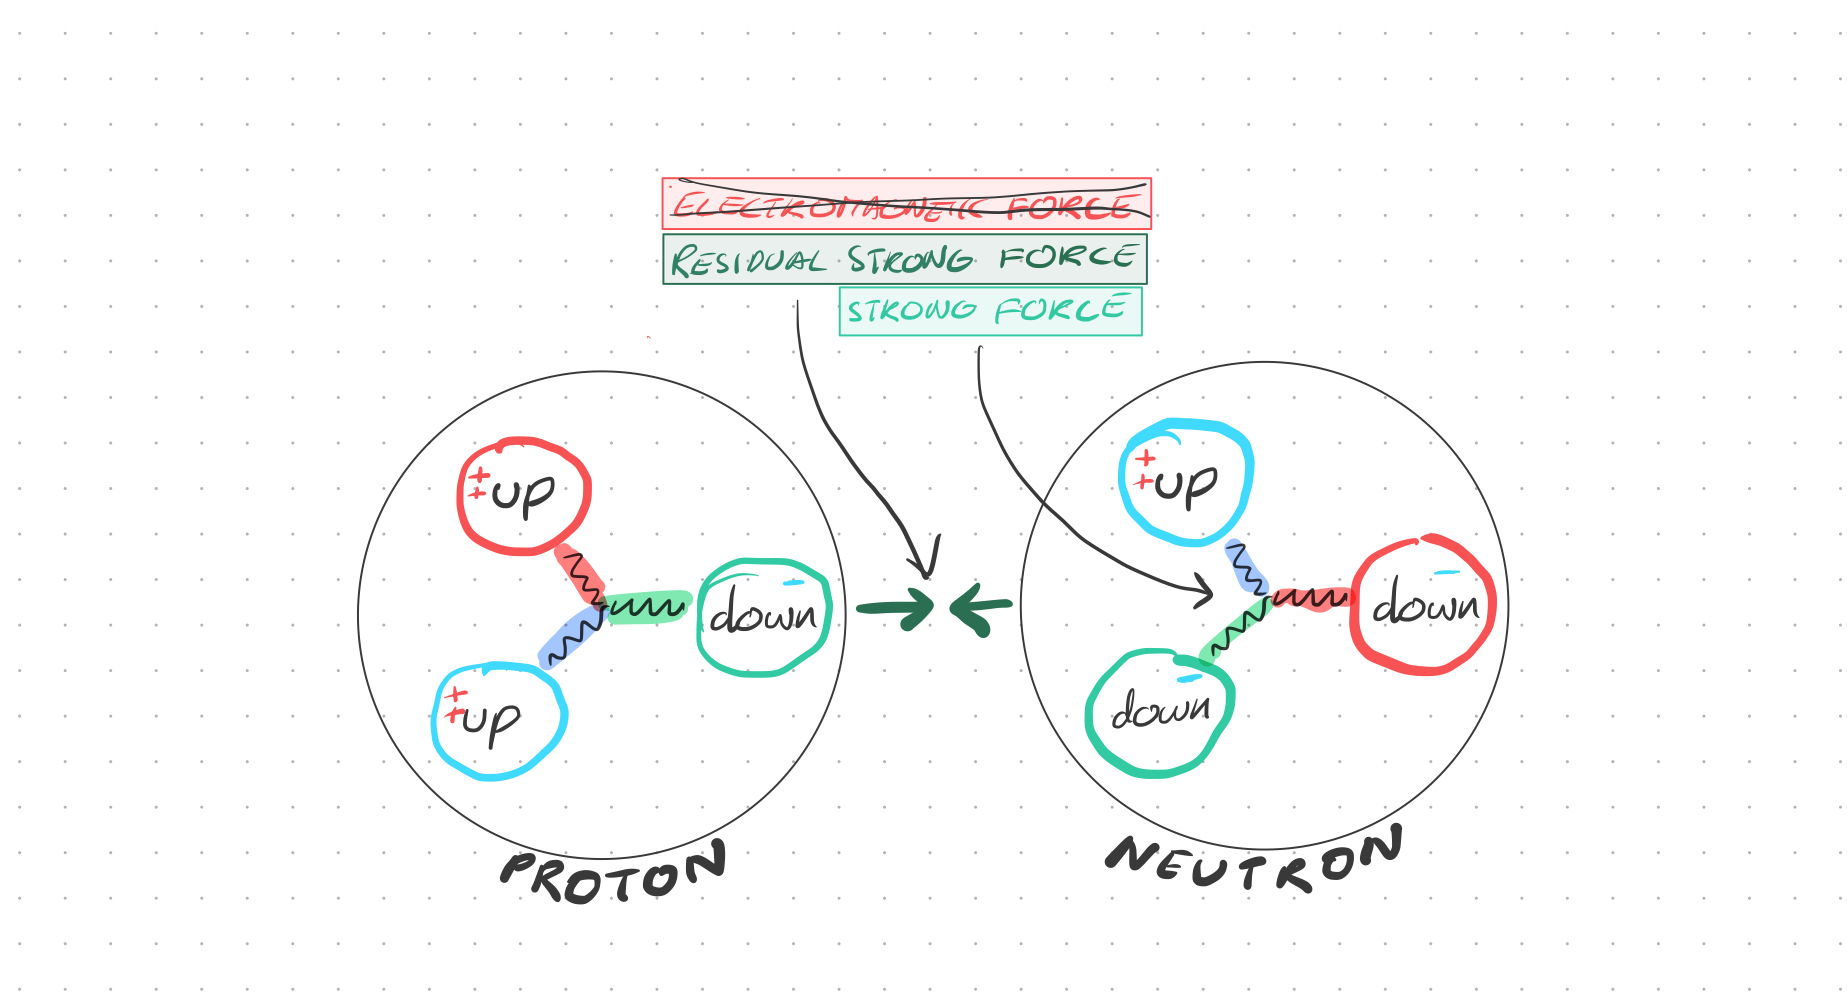 ELECTROMAGNETIC FORCE
RESIDUAL STRONG FORCE
STRONG FORCE
++ up
++ up
- down
PROTON
++ up
- down
- down
NEUTRON